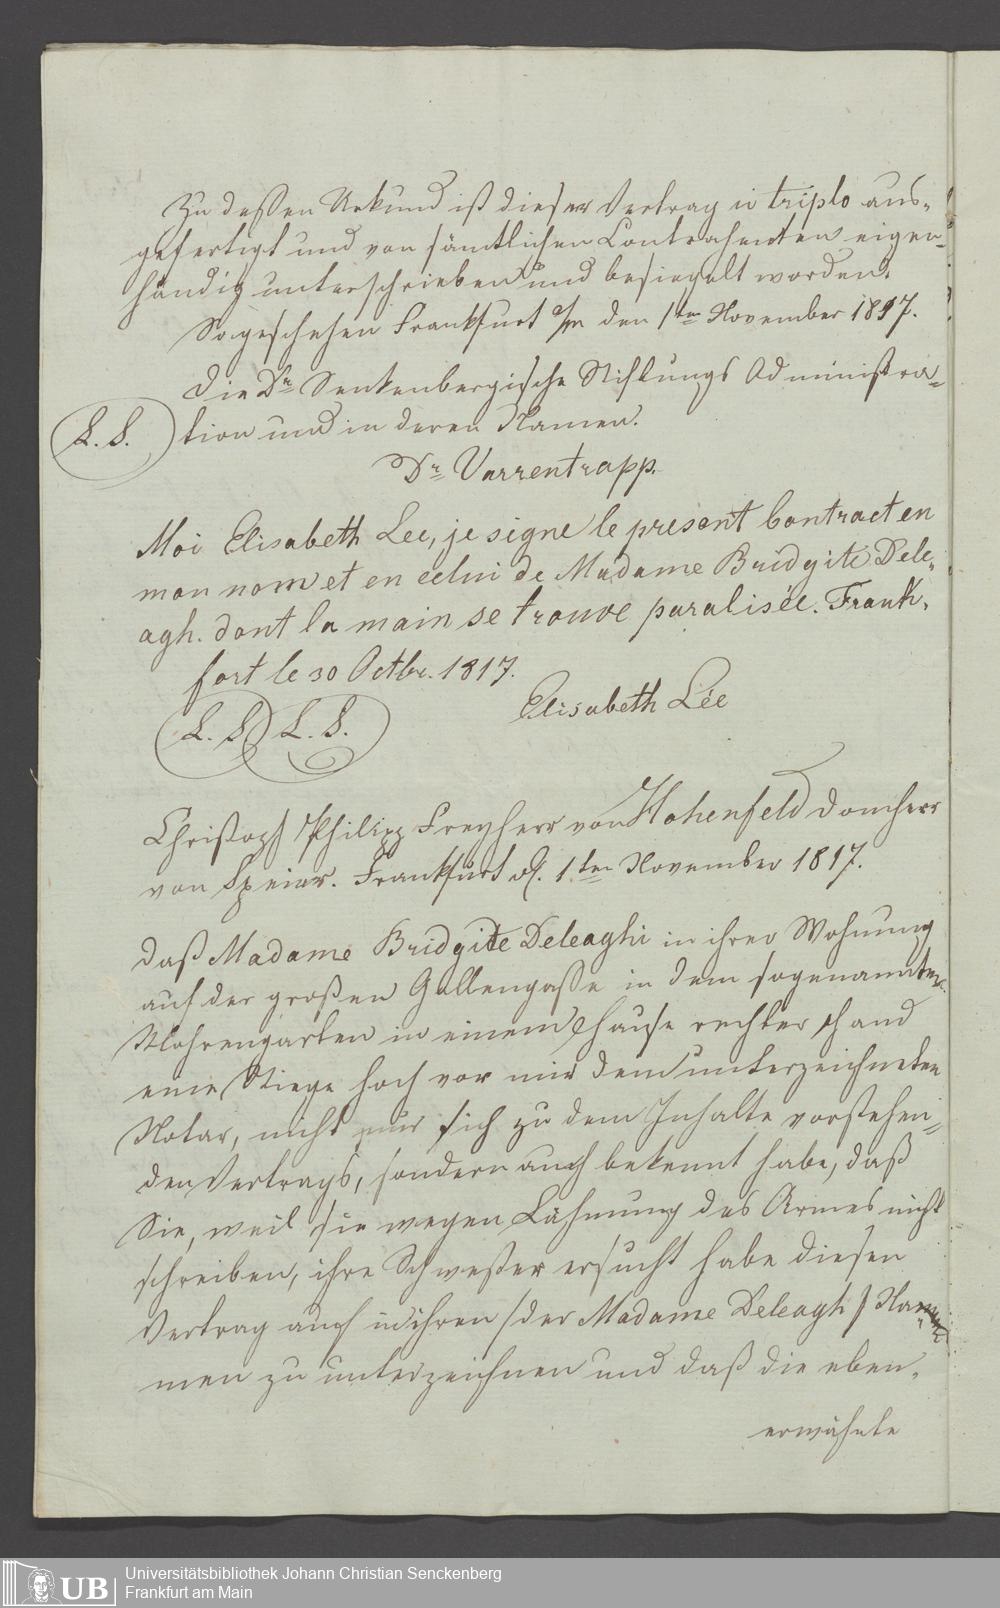 Zu dessen Urkund ist dieser Vertrag in triplo aus-
gefertigt und von sämtlichen Contrahenten eigen-
händig unterschrieben und besiegelt worden.
So geschehen Frankfurt a/m den 1ten November 1817.
Die Dr Senkenbergische Stiftungs Administra-
L. S. tion und in deren Namen.
Dr Varrentrapp.
Moi Elisabeth Lee, je signe le present Contract en
mon nom et en celui de Madame Bridgite Dele-
agh. dont la main se trouve paralisée. Frank-
fort le 30 Octbr. 1817.
Elisabeth Lée
L. S. L. S.
Christoph Philipp Freyherr von Hohenfeld Domherr
von Speier. Frankfurt d. 1ten November 1817.
daß Madame Bridgite Deleaghi in ihrer Wohnung
auf der großen Gallengasse in dem sogenannten
Mohrengarten in einem Hause rechter Hand
eine Stiege hoch vor mir dem unterzeichneten
Notar, nicht nur sich zu dem Inhalte vorstehen-
den Vertrags, sondern auch bekennt habe, daß
Sie, weil sie wegen Lähmung des Armes nicht
schreiben, ihre Schwester ersucht habe diesen
Vertrag auch in ihren /der Madame Deleagh/ Na-
men zu unterzeichnen und daß die eben-
erwähnte
Universitätsbibliothek Johann Christian Senckenberg
UB Frankfurt am Main